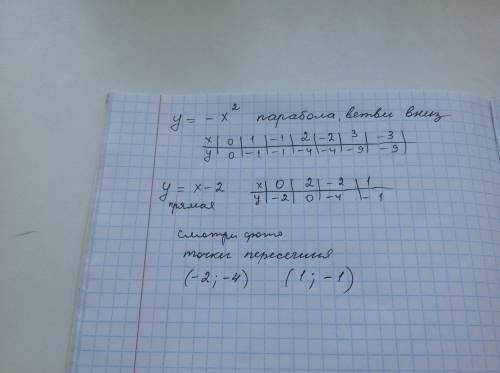 y = - x² парабола, ветви вниз
x | 0 | 1 | -1 | 2 | -2 | 3 | -3
y | 0 | -1 | -1 | -4 | -4 | -9 | -9
y = x-2 x | 0 | 2 | -2 | 1
прямая y | -2 | 0 | -4 | -1
смотри фото
точки пересечения
(-2; -4) (1; -1)